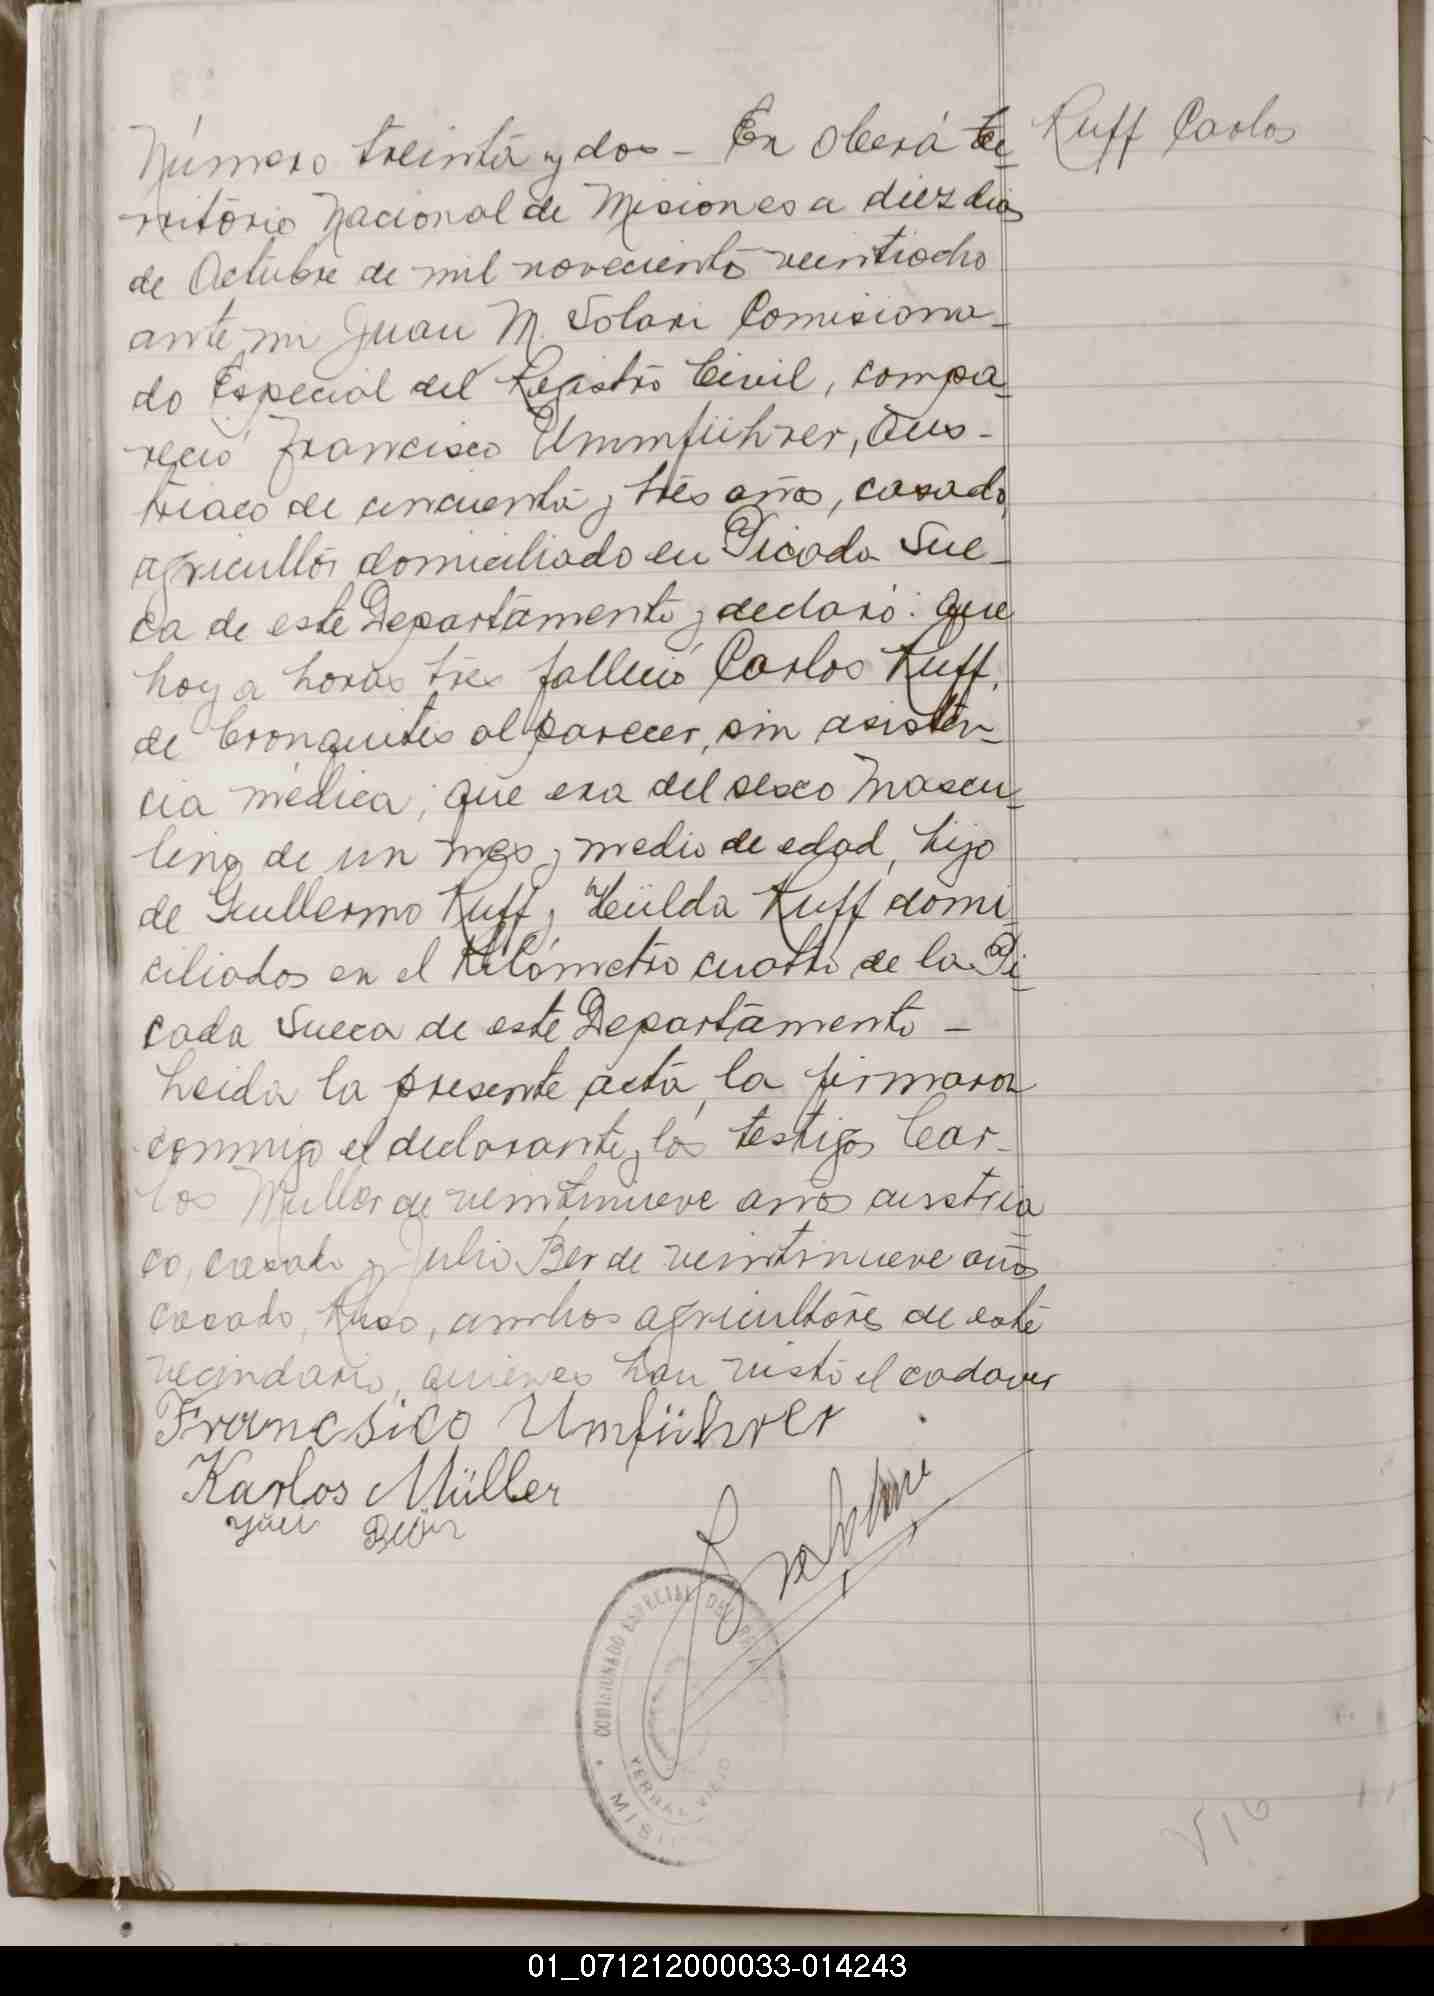 Número treinta y dos - En Oberá te-
Ruff Carlos
rritorio Nacional de Misiones a diez dias
de Octubre de mil novecientos veintiocho
ante mi Juan M. Solari Comisiona-
do Especial del Registro Civil, compa-
reció Francisco Ummführer, Aus-
triaco de cincuenta y tres años, casado,
agricultor domiciliado en Picada Sue-
ca de este Departamento y declaró: Que
hoy a horas tres falleció Carlos Ruff,
de bronquitis al parecer, sin asisten-
cia médica; que era del sexo mascu-
lino de un mes y medio de edad, hijo
de Guillermo Ruff y Hülda Ruff domi
ciliados en el Kilómetro cuatro de la Pi
cada Sueca de este Departamento -
Leida la presente acta, la firmaron
conmigo el declarante y los testigos Car-
los Muller de veintinueve años austria
co, casado y Julio Ber de veintinueve años
casado, Ruso, ambos agricultores de este
vecindario, quienes han visto el cadaver
Francsico Umführer
Karlos Müller
COMISIONADO ESPECIAL DEL
YERBAL VIEJO
MISI
V16
01_071212000033-014243